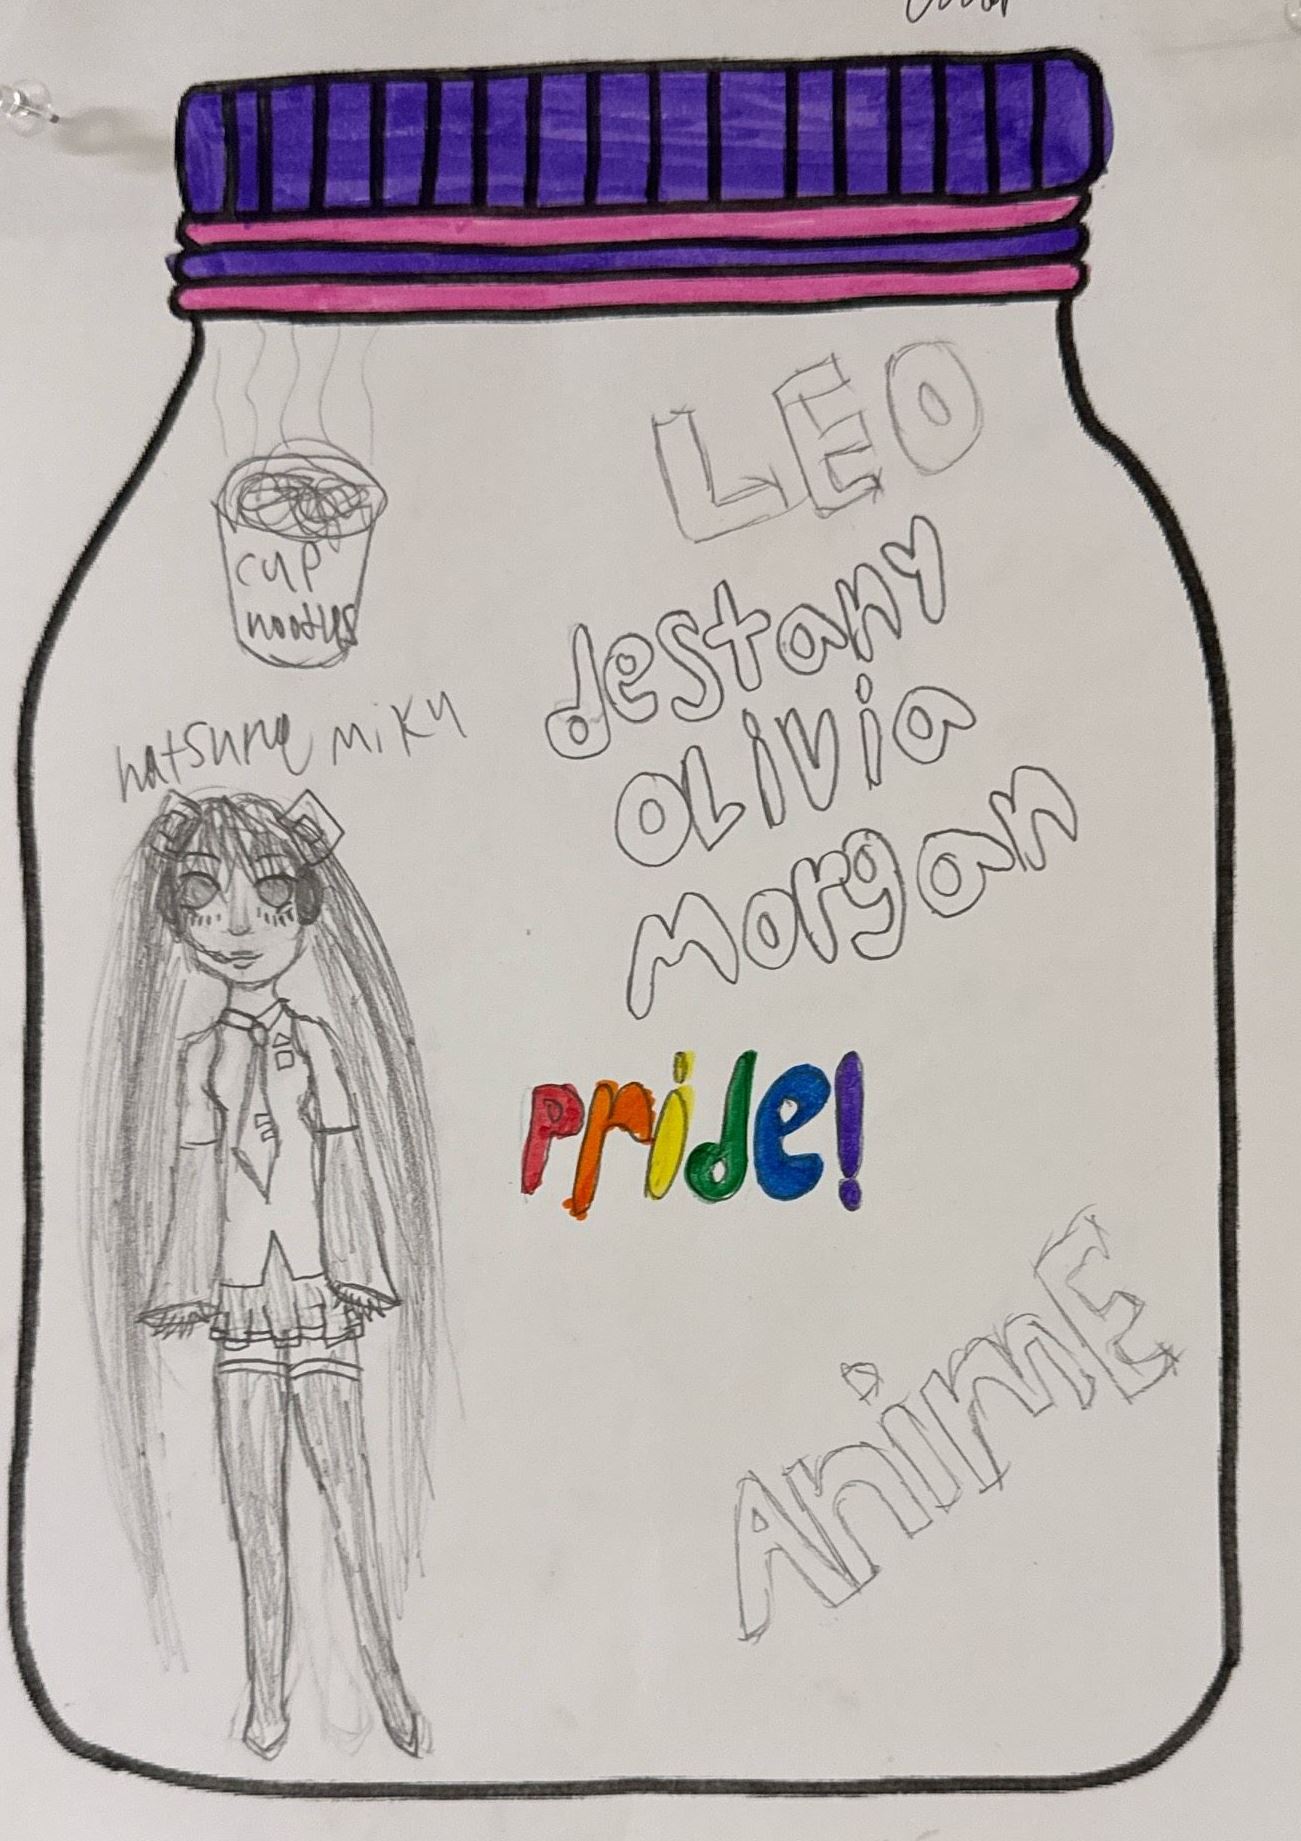 LEO
cup
noodles
destany
hatsune miku
OLivia
Morgan
Pride!
AnimE